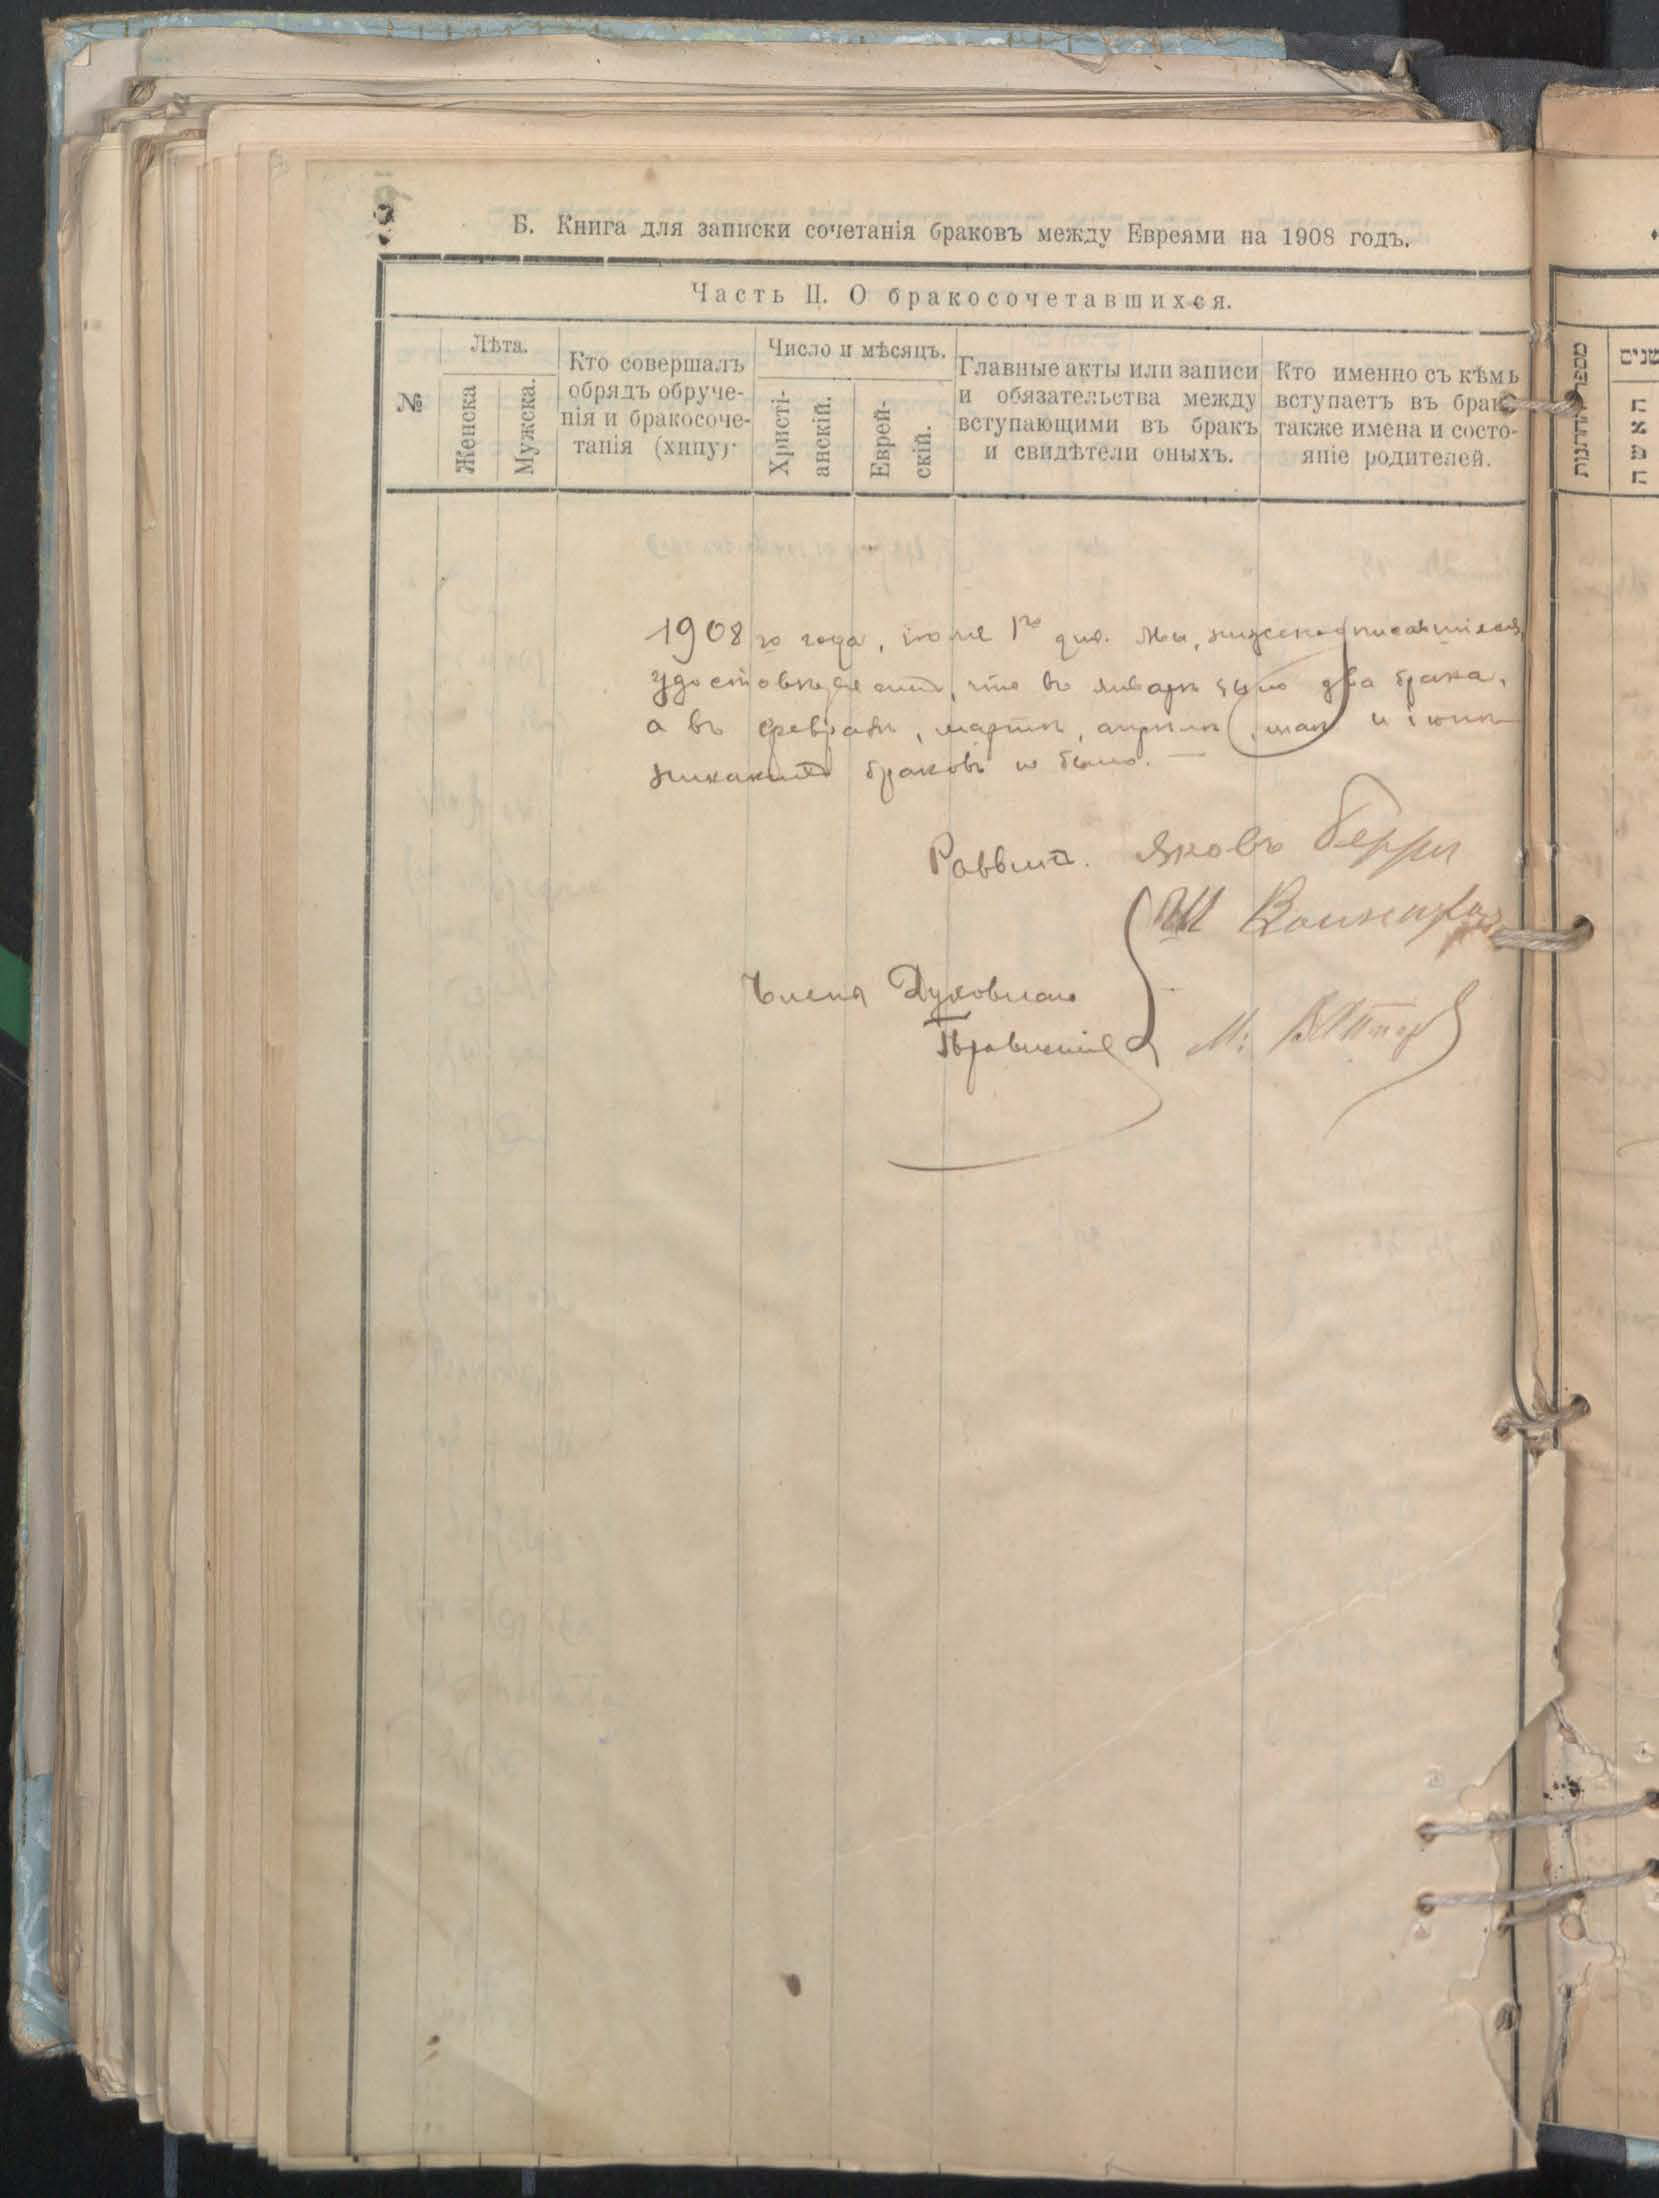 Б. Книга для записки сочетанія браковъ между Евреями на 1908 годъ.
Часть II. О бракосочетавшихся.
№
Лѣта.
Женска
Мужска.
Кто совершалъ
обрядъ обруче-
нія и бракосоче-
танія (хипу):
Число и мѣсяцъ.
Христі-
анскій.
Еврей-
скій.
Главные акты или записи
и обязательства между
вступающими въ бракъ
и свидѣтели оныхъ.
Кто именно съ кѣмъ
вступаетъ въ бракъ
также имена и состо-
яніе родителей.
מספר החתנות
שנים
האשה
1908 го года, іюля 1го дня. Мы, нижеподписавшіеся
удостовѣряемъ, что въ январѣ было два брака,
а въ февралѣ, мартѣ, апрѣлѣ, маѣ и іюнѣ
никакихъ браковъ не было.
Раввинъ. Яковъ Берри
Члены Духовнаго
Правленія
М.